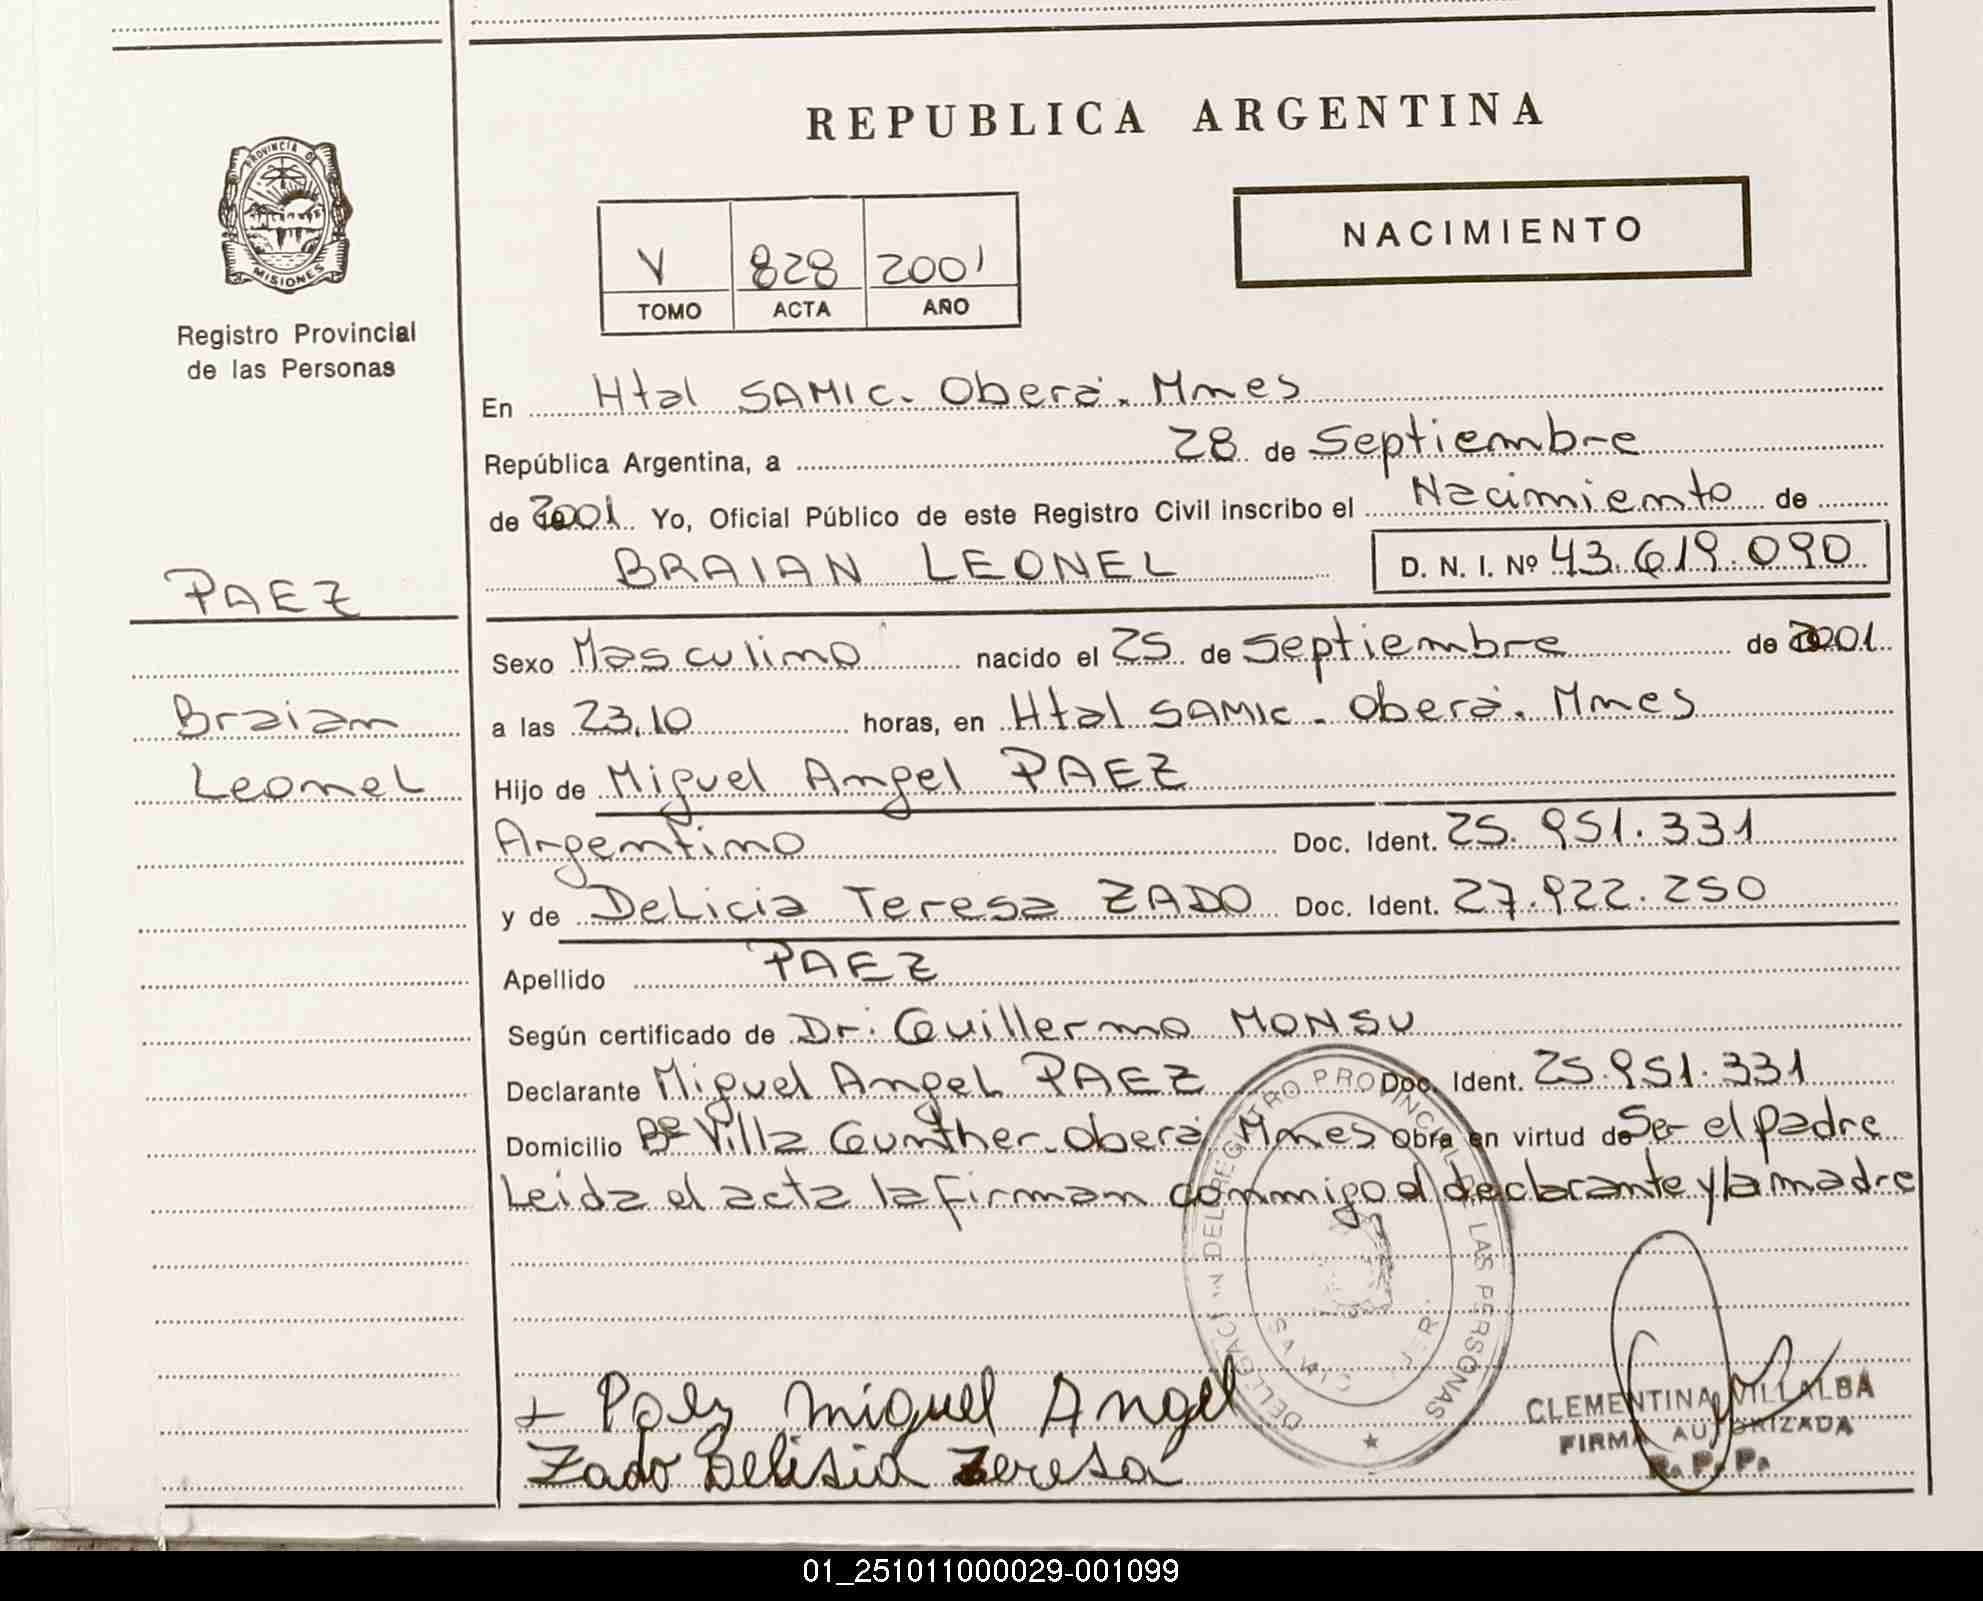 REPUBLICA ARGENTINA
PROVINCIA DE
MISIONES
Registro Provincial
de las Personas
NACIMIENTO
V 828 2001
TOMO ACTA AÑO
En Htal SAMIC. Oberá. Mnes
República Argentina, a 28 de Septiembre
de 2001 Yo, Oficial Público de este Registro Civil inscribo el Nacimiento de
BRAIAN LEONEL D. N. I. Nº 43.619.090
PAEZ
Braian
Leonel
Sexo Masculino nacido el 25 de Septiembre de 2001
a las 23.10 horas, en Htal SAMIC. Oberá. Mnes
Hijo de Miguel Angel PAEZ
Argentino Doc. Ident. 25.951.331
y de Delicia Teresa ZADO Doc. Ident. 27.922.250
Apellido PAEZ
Según certificado de Dr. Guillermo MONSU
Declarante Miguel Angel PAEZ Doc. Ident. 25.951.331
Domicilio Bº Villa Gunther. Oberá Mnes Obra en virtud de Ser el padre
Leida el acta la firman conmigo el declarante y la madre
DEL REGISTRO PROVINCIAL DE LAS PERSONAS
+ Paez Miguel Angel
Zado Delisia Teresa
CLEMENTINA VILLALBA
FIRMA AUTORIZADA
R. P. P.
01_251011000029-001099